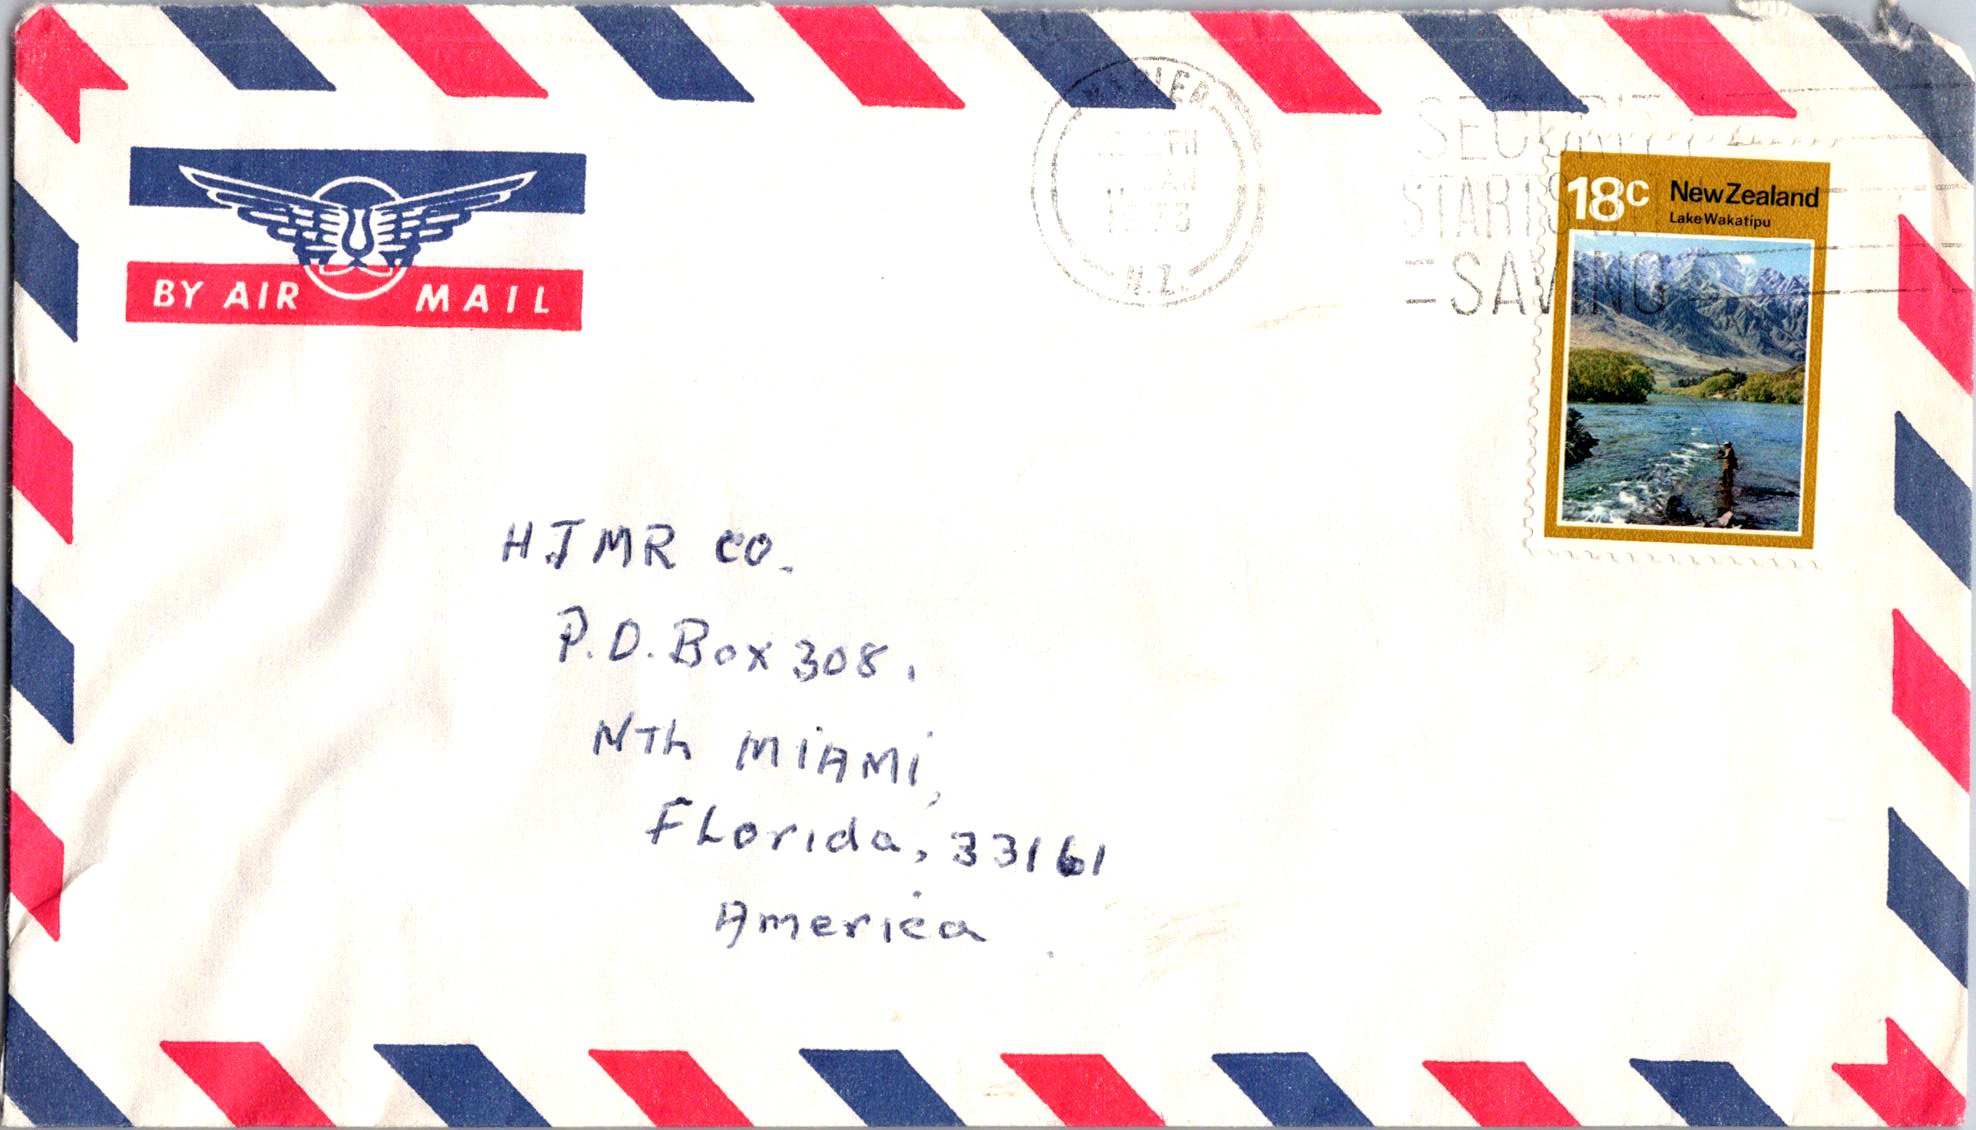 BY AIR MAIL
NAPIER
1973
N.Z.
SECURITY
STARTS
=SAVING
18c New Zealand
Lake Wakatipu
HJMR CO.
P.O. Box 308.
Nth MiAMi,
FLorida, 33161
America